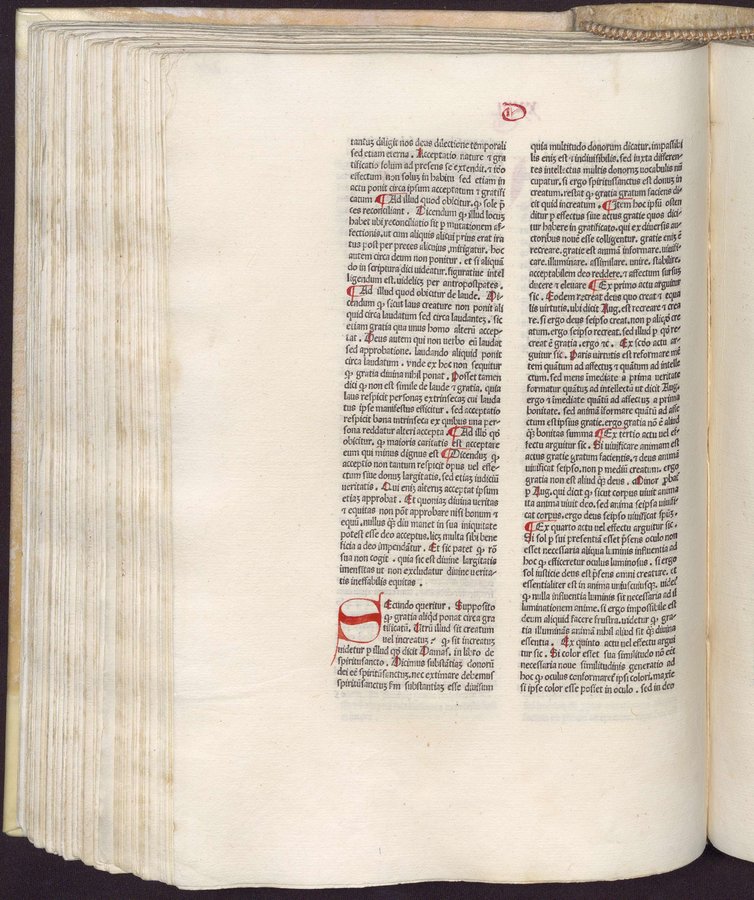 D
tantuȝ diligit nos deus dilectione temporali
sed etiam eterna. Acceptatio nature ⁊ gra
tificatio solum ad presens se extendit. ⁊ iō
effectum non soluȝ in habitu sed etiam in
actu ponit circa ipsum acceptatum ⁊ gratifi
catum ¶ Ad illud quod obicitur. ꝙ sole p̄
ces reconciliant. Dicendum ꝙ illud locuȝ
habet ubi reconciliatio fit ꝑ mutationem af-
fectionis. ut cum aliquis alicui prius erat ira
tus post per preces alicuius mitigatur. hoc
autem circa deum non ponitur. et si aliquā
do in scriptura dici videatur. figuratiue intel
ligendum est. uidelicȝ per antropospates.
¶ Ad illud quod obicitur de laude. Di-
cendum ꝙ sicut laus creature non ponit ali
quid circa laudatum sed circa laudantes. sic
etiam gratia qua unus homo alterū accep-
tat. Deus autem qui non uerbo eū laudat
sed approbatione. laudando aliquid ponit
circa laudatum. vnde ex hoc non sequitur
ꝙ gratia diuina nihil ponat. Posset tamen
dici ꝙ non est simile de laude ⁊ gratia. quia
laus respicit personaȝ extrinsecaȝ cui lauda
tus ipse manifestus efficitur. sed acceptatio
respicit bona intrinseca ex quibus una per-
sona reddatur alteri accepta ¶ Ad illō qō
obicitur. ꝙ maioris caritatis est acceptare
eum qui minus dignus est ¶ Dicenduȝ ꝙ
acceptio non tantum respicit opus vel effe-
ctum siue donuȝ largitatis. sed etiaȝ iudiciū
veritatis. Qui eniȝ alteruȝ acceptat ipsum
etiaȝ approbat. Et quoniaȝ diuina veritas
⁊ equitas non pōt approbare nisi bonum ⁊
equū. nullus ꝙ̄ diu manet in sua iniquitate
potest esse deo acceptus. licȝ multa sibi bene
ficia a deo impendātur. Et sic patet ꝙ rō
sua non cogit. quia sic est diuine largitatis
imensitas ut non excludatur diuine uerita-
tis ineffabilis equitas.
Secundo queritur. Supposito
ꝙ gratia aliqd ponat circa gra
tificatū. Utrū illud sit creatum
uel increatuȝ. ⁊ ꝙ sit increatuȝ
uidetur ꝑ illud qō dicit Damas. in libro de
spiritusancto. Dicimus substātiaȝ donorū
dei eē spiritūsanctuȝ. nec extimare debemus
spiritūsanctuȝ fm substantiaȝ esse diuisum
quia multitudo donorum dicatur. impassibi
lis eniȝ est ⁊ indiuisibilis. sed iuxta differen-
tes intellectus multis donorȝ vocabulis nū
cupatur. si ergo spiritussanctus est donum in
creatum. restat ꝙ gratia gratum faciens di-
cit quid increatum. ¶ Item hoc ipsū osten
ditur ꝑ effectus siue actus gratie quos dici-
tur habere in gratificato. qui ex diuersis au-
ctoribus noue esse colligentur. gratie eniȝ ē
recreare. gratie est animā informare. viuifi-
care. illuminare. assimilare. unire. stabilire.
acceptabilem deo reddere. ⁊ affectum sursuȝ
ducere ⁊ eleuare ¶ Ex primo actu arguitur
sic. Eodem recreat deus quo creat ⁊ equa
lis virtutis. ubi dicit Aug. est recreare ⁊ crea
re. si ergo deus seipso creat. non ꝑ aliqō cre
atum. ergo seipso recreat. sed illud ꝑ qō re-
creat ē gratia. ergo ⁊c. ¶ Ex scōo actu ar-
guitur sic. Paris virtutis est reformare mē
tem quātum ad affectuȝ ⁊ quātum ad intelle
ctum. sed mens īmediate a prima veritate
formatur quātuȝ ad intellectū ut dicit Aug.
ergo ⁊ īmediate quātū ad affectuȝ a prima
bonitate. sed animā īformare quātū ad affe
ctum est ipsius gratie. ergo gratia nō ē aliud
ꝙ̄ bonitas summa ¶ Ex tertio actu vel ef-
fectu arguitur sic. Si viuificare animam est
actus gratie gratum facientis. ⁊ deus animā
viuificat seipso. non ꝑ mediū creatum. ergo
gratia non est aliud ꝙ̄ deus. Minor ꝓbat̄
ꝑ Aug. qui dicit ꝙ sicut corpus viuit anima
ita anima viuit deo. sed anima seipsa viuifi-
cat corpus. ergo deus seipso viuificat spūȝ.
¶ Ex quarto actu vel effectu arguitur sic.
Si sol ꝑ sui presentiā esset p̄sens oculo non
esset necessaria aliqua luminis influentia ad
hoc ꝙ efficeretur oculus luminosus. si ergo
sol iusticie deus est p̄sens omni creature. et
essentialiter est in anima uniuscuiusqȝ. videt̄
ꝙ nulla influentia luminis sit necessaria ad il
luminationem anime. si ergo impossibile est
deum aliquid facere frustra. uidetur ꝙ gra-
tia illuminās animā nihil aliud sit ꝙ̄ diuina
essentia. ¶ Ex quinto actu vel effectu argui
tur sic. Si color esset sua similitudo nō eēt
necessaria noue similitudinis generatio ad
hoc ꝙ oculus conformaret̄ ipsi colori. maxīe
si ipse color esse posset in oculo. sed in deo